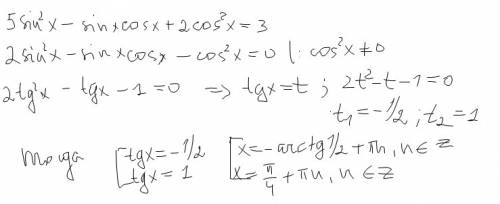 5sin²x - sinxcosx + 2cos²x = 3
2sin²x - sinxcosx - cos²x = 0 | : cos²x ≠ 0
2tg²x - tgx - 1 = 0 => tgx = t ; 2t² - t - 1 = 0
t₁ = -1/2 ; t₂ = 1
тогда [tgx = -1/2 [x = -arctg 1/2 + πn, n ∈ Z
[tgx = 1 [x = π/4 + πn, n ∈ Z